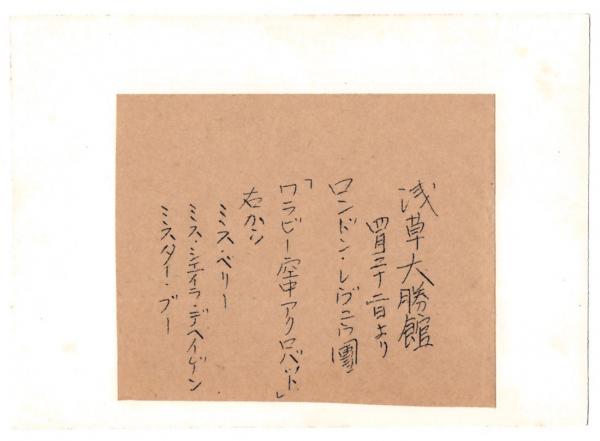 浅草大勝館
四月二十二日より
ロンドン・レヴュウ團
「ワラビー空中アクロバット」
右から
ミス・ベリー
ミス・シェイラ・デヘイゲン
ミスター・ブー